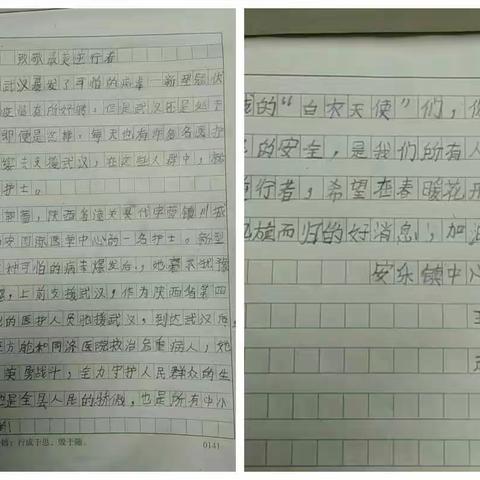 致敬最美逆行者
武汉暴发了可怕的病毒——新型冠状
疫情有所好转，但是武汉还是处于
即便是这样，每天也有许多名医护
支援武汉，在这些人群中，
护士。
陕西省潼关县代字营镇
国际医学中心的一名护士。新型
种可怕的病毒爆发后，她毫不犹豫
上前支援武汉，作为陕西省第四
的医护人员驰援武汉，到达武汉后，
方舱和同济医院救治危重病人，她
英勇战斗，全力守护人民群众的生
她是全县人民的骄傲，也是所有中小
的！
行成于思，毁于随。
0141
我的“白衣天使”们，你
的安全，是我们所有人
逆行者，希望在春暖花开
凯旋而归的好消息，加油
安乐镇中心